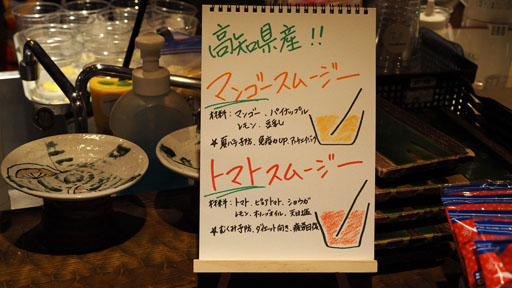 高知県産!!
マンゴースムージー
材料:マンゴー、パイナップル
レモン、豆乳
★夏バテ予防、免疫力UP、アンチエイジング
トマトスムージー
材料:トマト、ミニトマト、ショウガ
レモン、オリーブオイル、天日塩
★むくみ予防、ダイエット向き、疲労回復